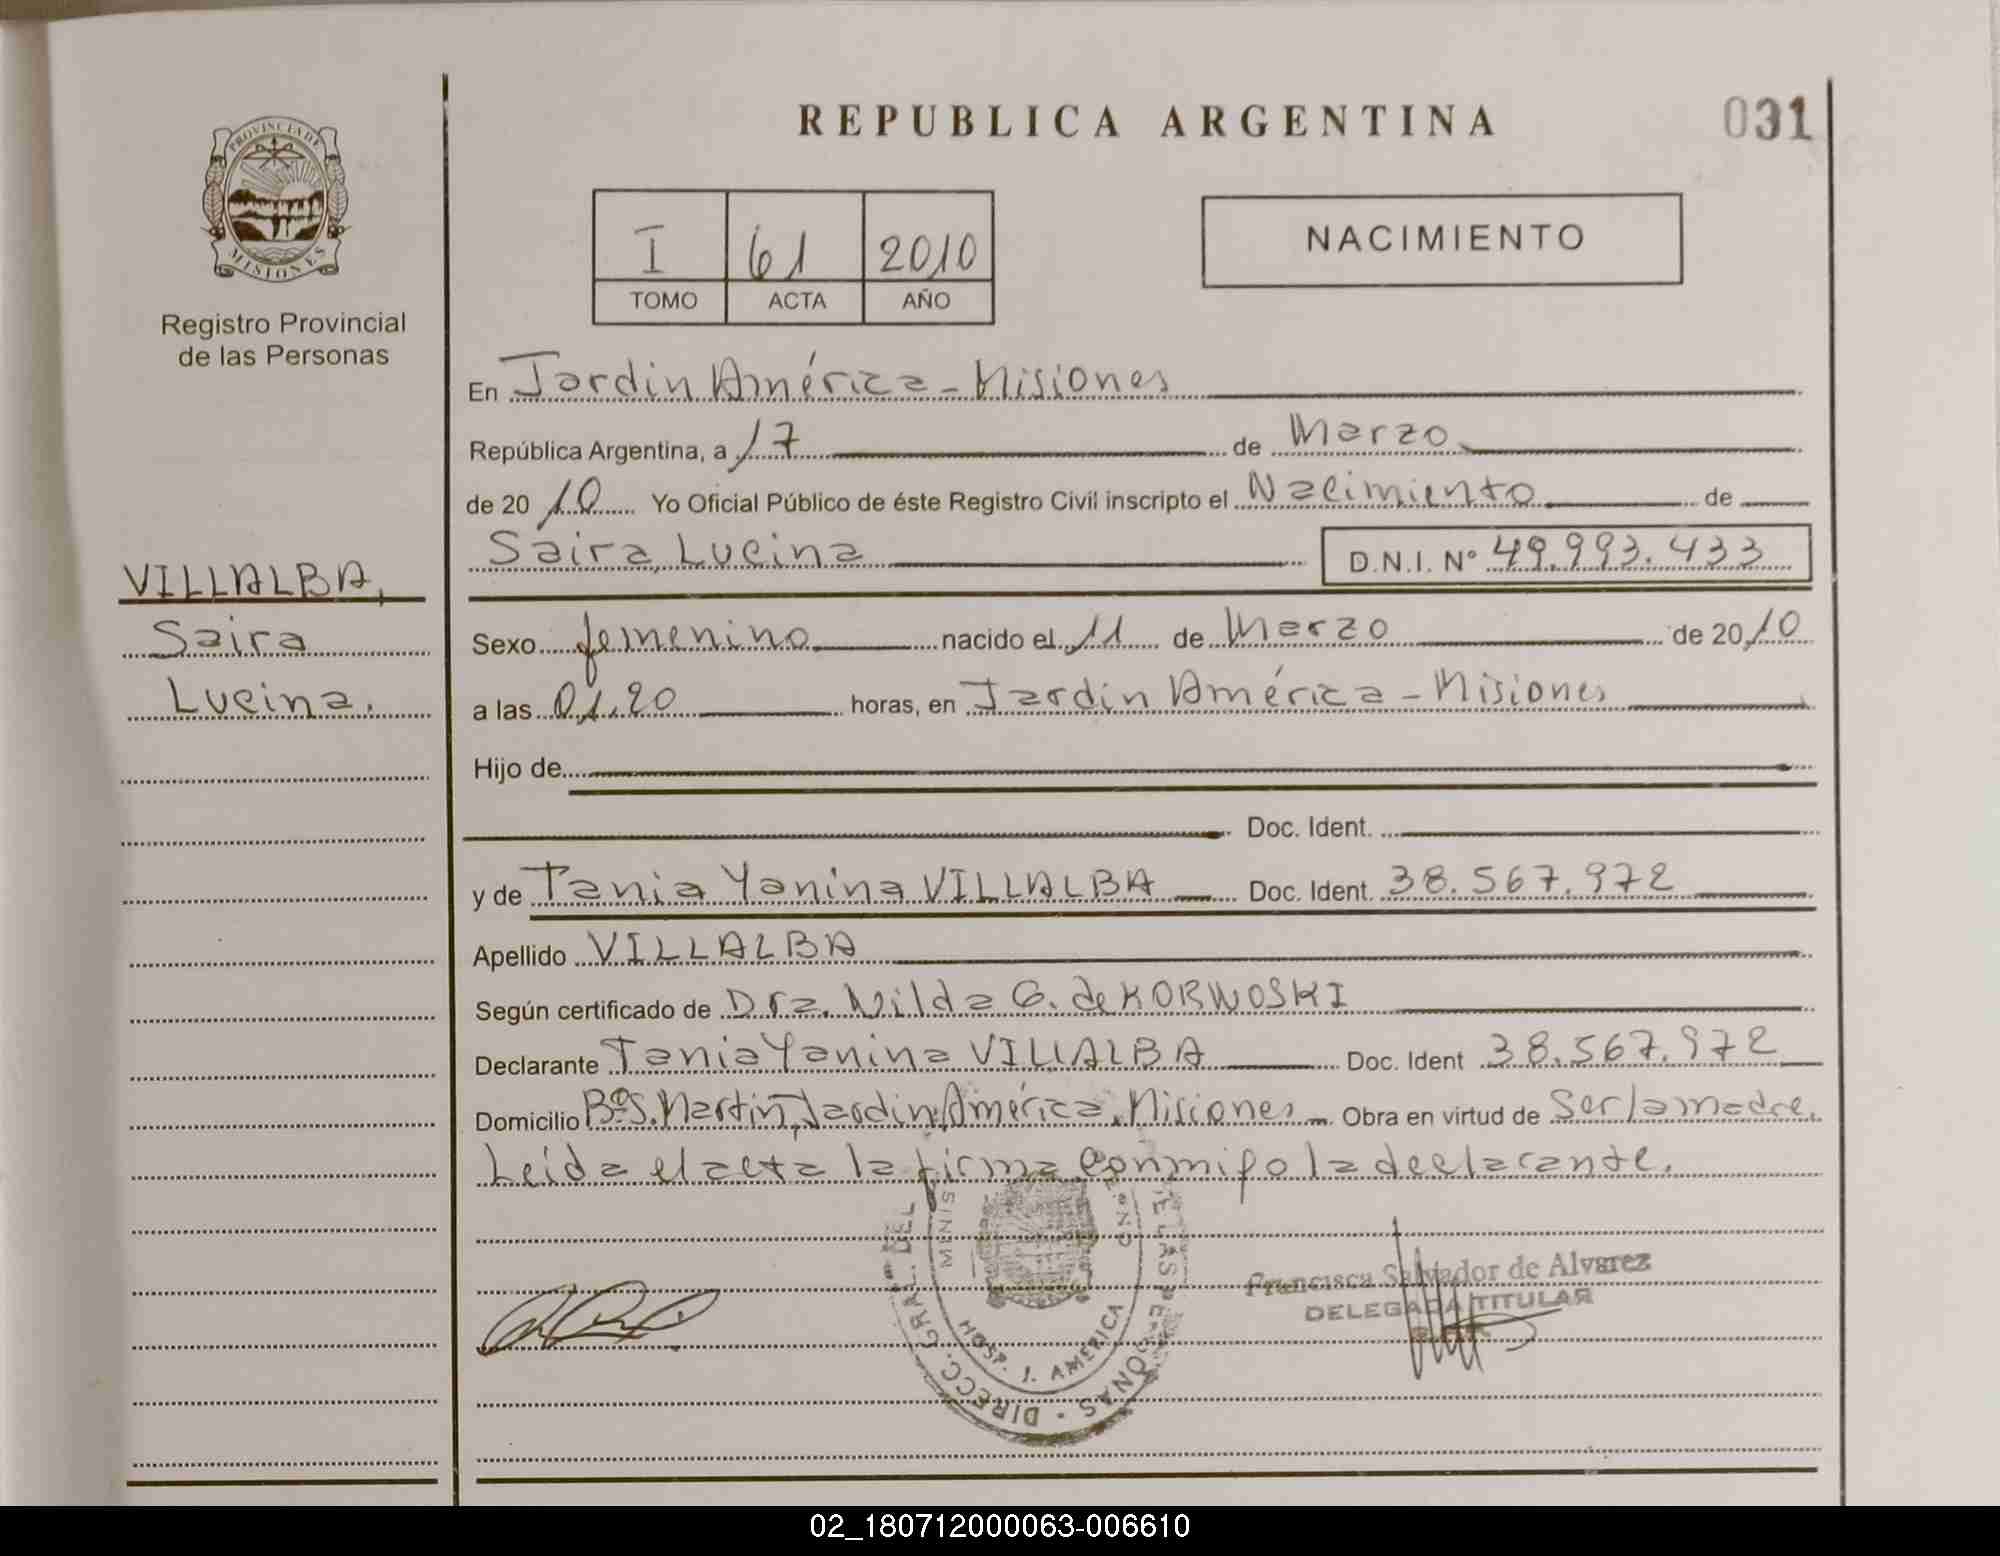 REPUBLICA ARGENTINA
031
PROVINCIA DE
MISIONES
Registro Provincial
de las Personas
I 61 2010
TOMO ACTA AÑO
NACIMIENTO
En Jardín América - Misiones
República Argentina, a 17 de Marzo
de 2010 Yo Oficial Público de éste Registro Civil inscripto el Nacimiento de
Saira Lucina D.N.I. Nº 49.993.433
VILLALBA,
Saira
Lucina.
Sexo femenino nacido el 11 de Marzo de 2010
a las 01.20 horas, en Jardín América - Misiones
Hijo de
Doc. Ident.
y de Tania Yanina VILLALBA Doc. Ident. 38.567.972
Apellido VILLALBA
Según certificado de Dra. Nilda G. de KORWOSKI
Declarante Tania Yanina VILLALBA Doc. Ident 38.567.972
Domicilio Bº S. Martín, Jardín América, Misiones Obra en virtud de Ser la madre.
Leída el acta la firma conmigo la declarante.
DIRECC. GRAL. DEL
HOSP. J. AMERICA
Francisca Salvador de Alvarez
DELEGADA TITULAR
02_180712000063-006610